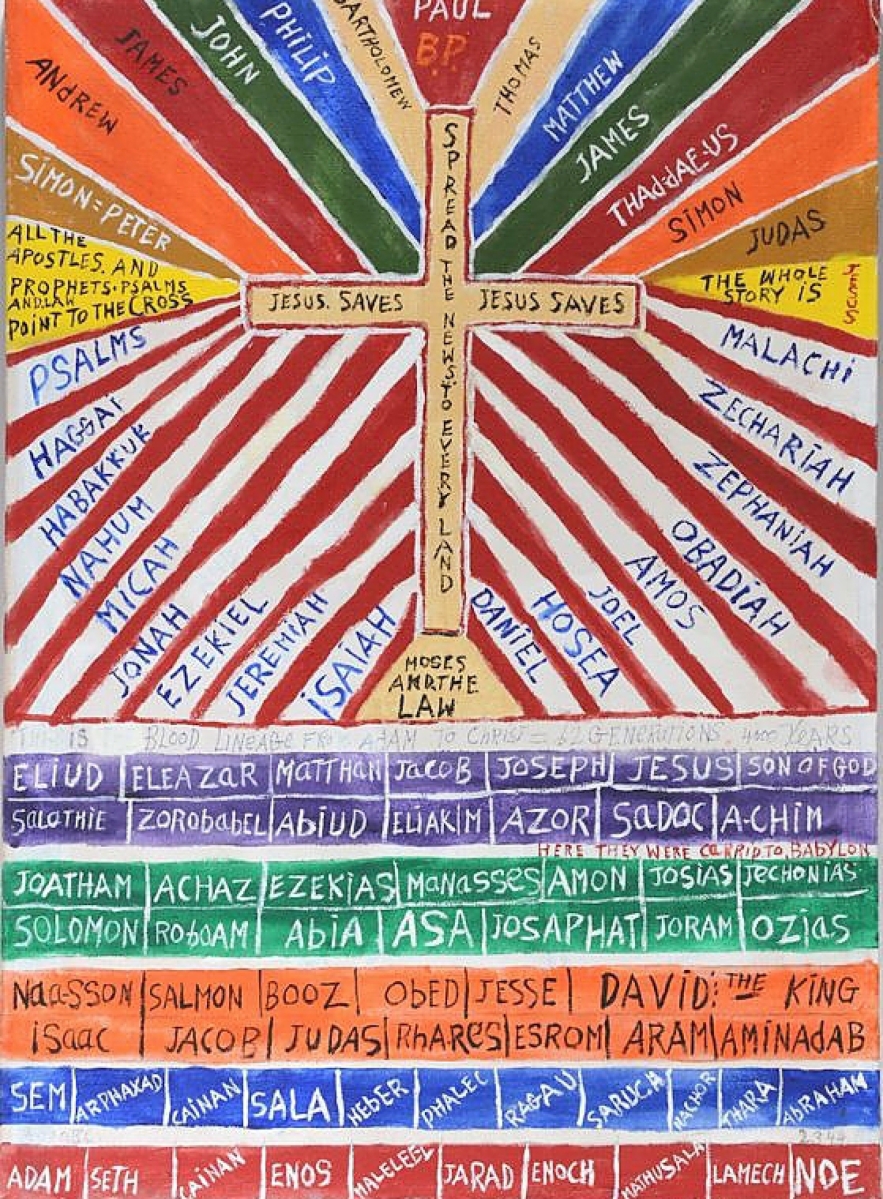 PAUL
B.P.
BARTHOLOMEW
THOMAS
PHILIP
MATTHEW
JOHN
JAMES
JAMES
THADDAE-US
ANDREW
SIMON
SIMON=PETER
JUDAS
ALL THE
APOSTLES. AND
PROPHETS. PSALMS
AND. LAW
POINT TO THE CROSS
THE WHOLE
STORY IS
JESUS. SAVES
JESUS SAVES
SPREAD THE NEWS. TO EVERY LAND
PSALMS
HAGGAI
HABAKKUK
NAHUM
MICAH
JONAH
EZEKIEL
JEREMIAH
ISAIAH
DANIEL
HOSEA
JOEL
AMOS
OBADIAH
ZEPHANIAH
ZECHARIAH
MALACHI
MOSES
AND THE
LAW
BLOOD LINEAGE FROM ADAM TO CHRIST = 62 GENERATIONS. 4000 YEARS
ELIUD ELEAZAR MATTHAN JACOB JOSEPH JESUS SON OF GOD
SALATHIE ZOROBABEL ABIUD ELIAKIM AZOR SADOC A-CHIM
HERE THEY WERE CARRID TO, BABYLON
JOATHAM ACHAZ EZEKIAS MANASSES AMON JOSIAS JECHONIAS
SOLOMON ROBOAM ABIA ASA JOSAPHAT JORAM OZIAS
NAA-SSON SALMON BOOZ OBED JESSE DAVID: THE KING
ISAAC JACOB JUDAS PHARES ESROM ARAM AMINADAB
SEM ARPHAXAD CAINAN SALA HEBER PHALEC RAGAU SARUCH NACHOR THARA ABRAHAM
2344
ADAM SETH CAINAN ENOS MALELEEL JARAD ENOCH MATHUSALA LAMECH NOE